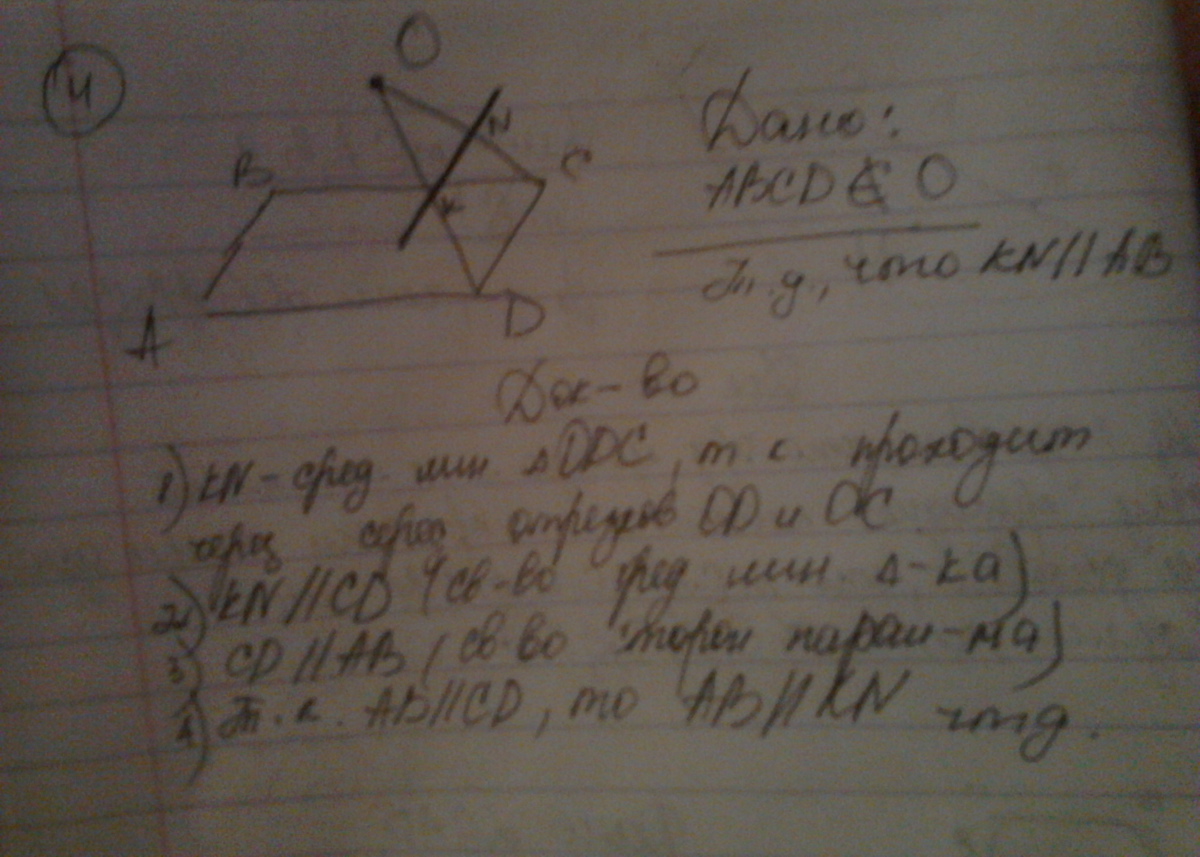 4
O
N
B
C
K
A
D
Дано:
ABCD ∉ O
Т.д., что KN//AB
Док-во
1) KN - сред. лин. △ODC, т.к. проходит
через серед отрезков OD и OC
2) KN//CD (св-во сред. лин. △-ка)
3) CD//AB (св-во сторон парал-ма)
4) Т.к. AB//CD, то AB//KN чтд.